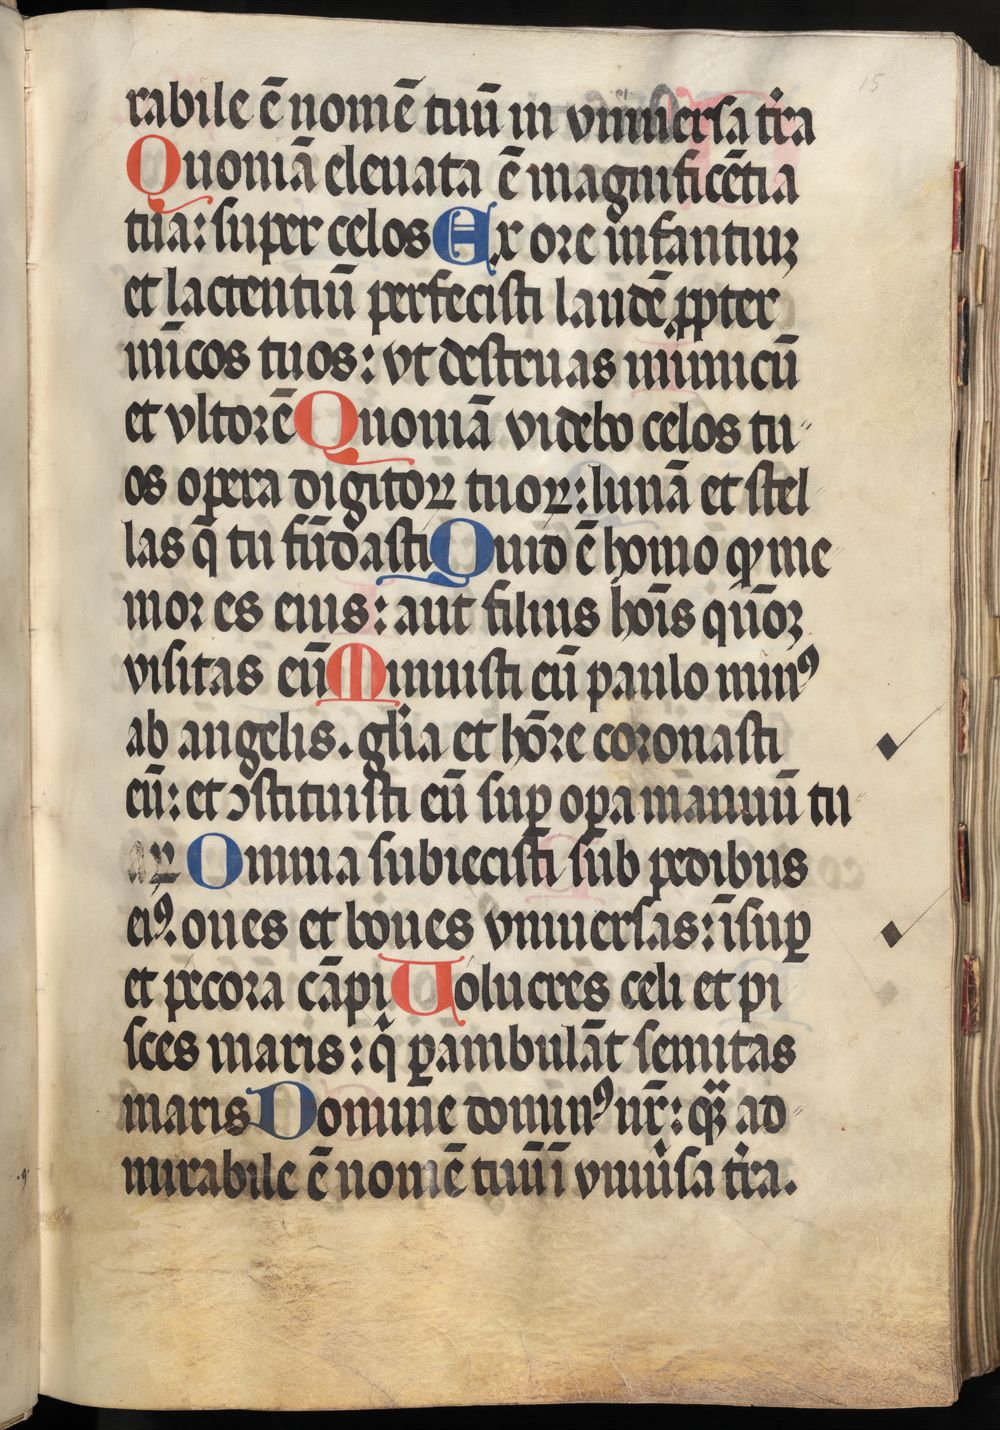 15
rabile ē nomē tuū in vniuersa tr̄a
Quoniā eleuata ē magnificētia
tua: super celos Ex ore infantiuꝫ
et lactentiū perfecisti laudē ꝓpter
inīcos tuos: vt destruas inimicū
et vltorē Quoniā videbo celos tu-
os opera digitoꝝ tuoꝝ: lunā et stel
las q̄ tu fūdasti Quid ē homo qꝫ me
mor es eius: aut filius hoīs qūoꝫ
visitas eū Minuisti eū paulo minꝰ
ab angelis. glīa et hōre coronasti
eū: et ꝯstituisti eū suꝑ oꝑa manuū tu
aꝝ Omnia subiecisti sub pedibus
eiꝰ. oues et boues vniuersas: īsuꝑ
et pecora cāpi Uolucres celi et pi
sces maris: q̄ ꝑambulāt semitas
maris Domine dominꝰ nr̄: qꝫ ad-
mirabile ē nomē tuū ī vniūsa tr̄a.